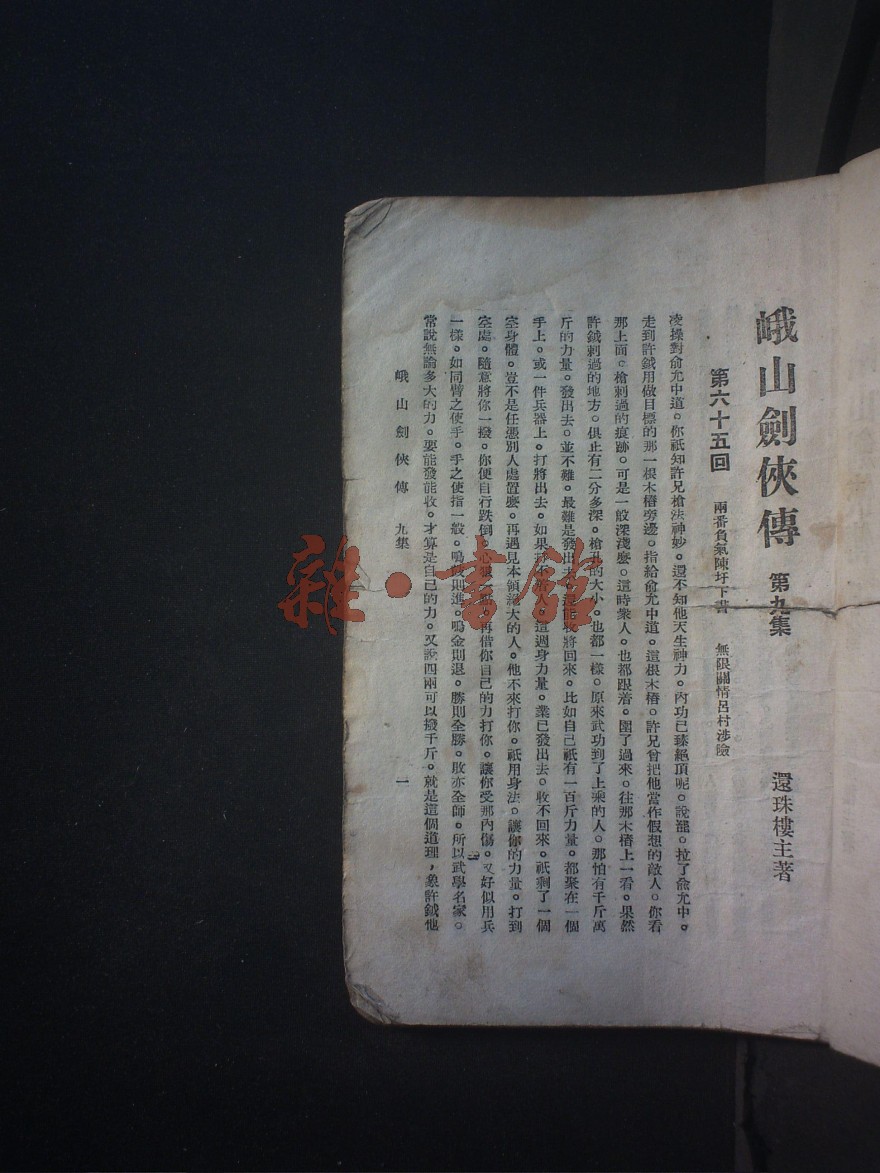 峨山劍俠傳 第九集 還珠樓主著
第六十五回 兩番負氣陳圩下書 無限關情呂村涉險
凌操對俞允中道。你祇知許兄槍法神妙。還不知他天生神力。內功已臻絕頂呢。說罷。拉了俞允中。
走到許鉞用做目標的那一根木樁旁邊。指給俞允中道。這根木樁。許兄曾把他當作假想的敵人。你看
那上面。槍刺過的痕跡。可是一般深淺麼。這時衆人。也都跟着。圍了過來。往那木樁上一看。果然
許鉞刺過的地方。俱止有二分多深。槍孔的大小。也都一樣。原來武功到了上乘的人。那怕有千斤萬
斤的力量。發出去。並不難。最難是發出去。還能收將回來。比如自己祇有一百斤力量。都聚在一個
手上。或一件兵器上。打將出去。如果打不着人。這週身力量。業已發出去。收不回來。祇剩了一個
空身體。豈不是任憑別人處置麼。再遇見本領絕大的人。他不來打你。祇用身法。讓你的力量。打到
空處。隨意將你一撥。你便自行跌倒。心狠一點。再借你自己的力打你。讓你受那內傷。又好似用兵
一樣。如同臂之使手。手之使指一般。鳴鼓則進。鳴金則退。勝則全勝。敗亦全師。所以武學名家。
常說無論多大的力。要能發能收。才算是自己的力。又說四兩可以撥千斤。就是這個道理，象許鉞他
峨山劍俠傳 九集 一
雜·書館